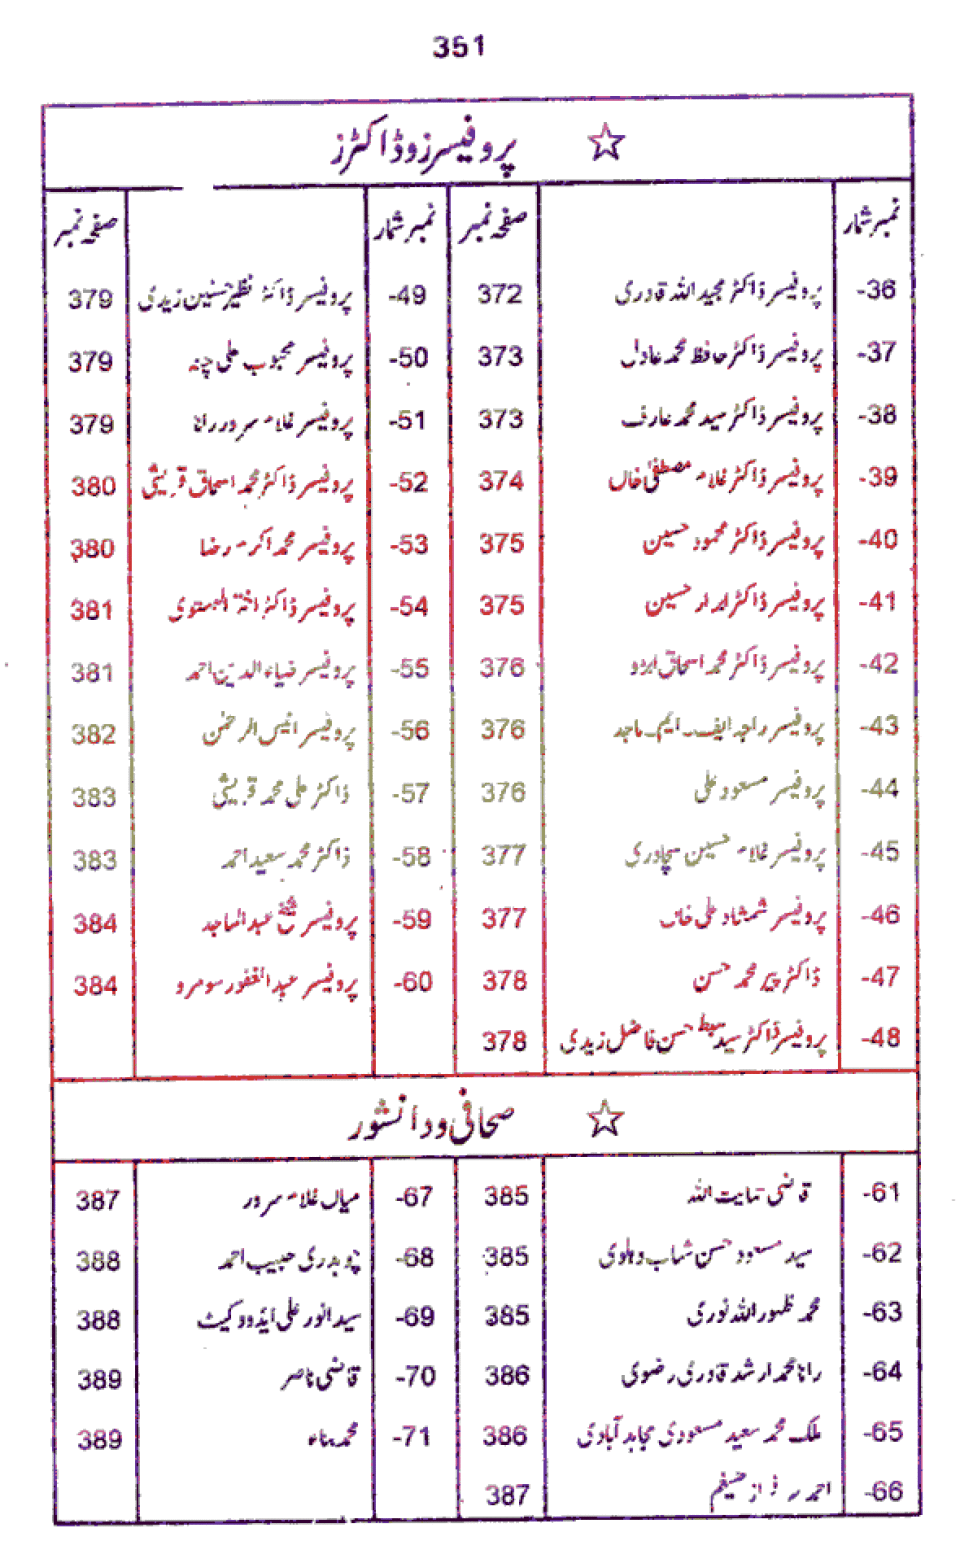 351
☆ پروفیسرز و ڈاکٹرز
نمبر شمار صفحہ نمبر نمبر شمار صفحہ نمبر
36- پروفیسر ڈاکٹر مجید اللہ قادری 372 49- پروفیسر ڈاکٹر نظیر حسنین زیدی 379
37- پروفیسر ڈاکٹر حافظ محمد عادل 373 50- پروفیسر محبوب علی چنہ 379
38- پروفیسر ڈاکٹر سید محمد عارف 373 51- پروفیسر غلام سرور رانا 379
39- پروفیسر ڈاکٹر غلام مصطفیٰ خاں 374 52- پروفیسر ڈاکٹر محمد اسحاق قریشی 380
40- پروفیسر ڈاکٹر محمود حسین 375 53- پروفیسر محمد اکرم رضا 380
41- پروفیسر ڈاکٹر ابرار حسین 375 54- پروفیسر ڈاکٹر 381
42- پروفیسر ڈاکٹر محمد اسحاق ابڑو 376 55- پروفیسر ضیاء الدین احمد 381
43- پروفیسر راجہ ایف۔ ایم۔ ماجد 376 56- پروفیسر انیس الرحمٰن 382
44- پروفیسر مسعود علی 376 57- ڈاکٹر علی محمد قریشی 383
45- پروفیسر غلام حسین سچاوری 377 58- ڈاکٹر محمد سعید احمد 383
46- پروفیسر شمشاد علی خاں 377 59- پروفیسر شیخ عبدالماجد 384
47- ڈاکٹر پیر محمد حسن 378 60- پروفیسر عبدالغفور سومرو 384
48- پروفیسر ڈاکٹر سید سبط حسن فاضل زیدی 378
☆ صحافی و دانشور
61- قاضی حمایت اللہ 385 67- میاں غلام سرور 387
62- سید مسعود حسن شہاب دہلوی 385 68- چوہدری حبیب احمد 388
63- محمد ظہور اللہ نوری 385 69- سید انور علی ایڈووکیٹ 388
64- رانا محمد ارشد قادری رضوی 386 70- قاضی ناصر 389
65- ملک محمد سعید مسعودی مجاہد آبادی 386 71- محمد 389
66- احمد سرفراز ضیغم 387